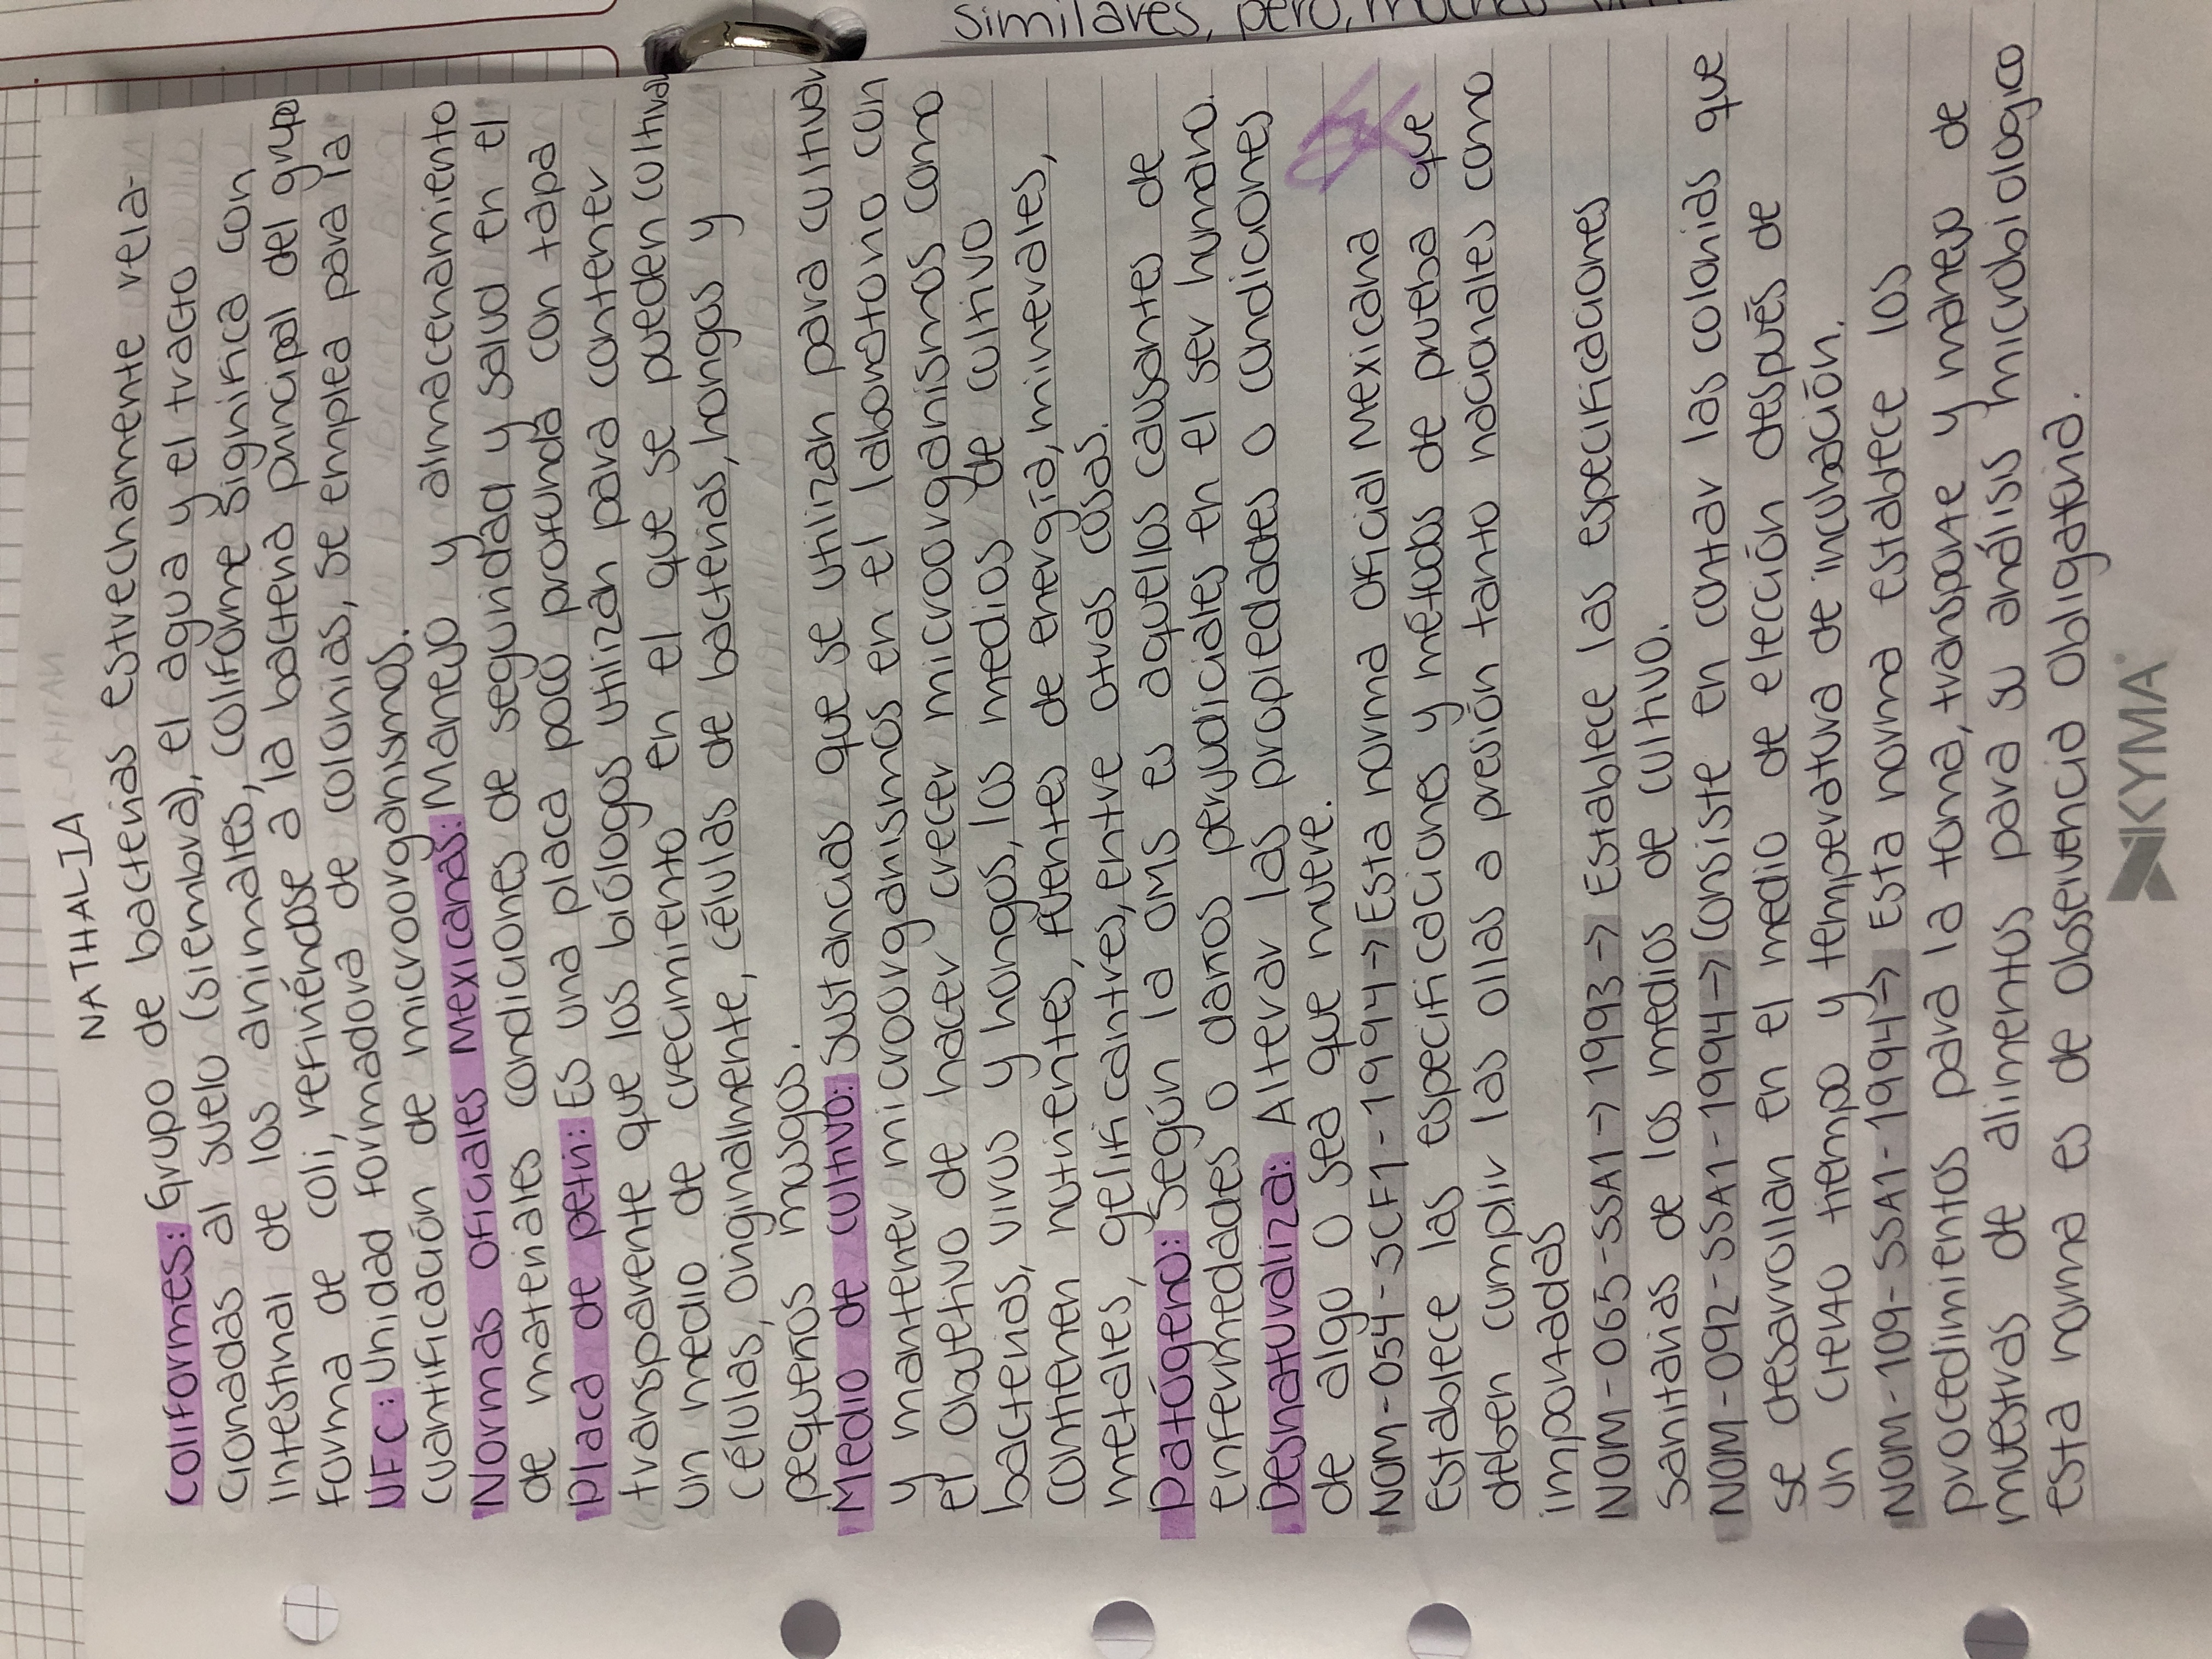 similares, pero, muchas
NATHALIA
Coliformes: Grupo de bacterias estrechamente rela-
cionadas al suelo (siembra), el agua y el tracto
Intestinal de los animales, coliforme significa con
forma de coli, refiriéndose a la bacteria principal del grupo
UFC: Unidad formadora de colonias, se emplea para la
cuantificación de microorganismos.
Normas oficiales Mexicanas: Manejo y almacenamiento
de materiales condiciones de seguridad y salud en el
Placa de petri: Es una placa poco profunda con tapa
transparente que los biólogos utilizan para contener
un medio de crecimiento en el que se pueden cultivar
células, originalmente, células de bacterias, hongos y
pequeños musgos.
Medio de cultivo: Sustancias que se utilizan para cultivar
y mantener microorganismos en el laboratorio con
el objetivo de hacer crecer microorganismos como
bacterias, virus y hongos, los medios de cultivo
contienen nutrientes, fuentes de energía, minerales,
metales, gelificantres, entre otras cosas.
Patógeno: Según la OMS es aquellos causantes de
enfermedades o daños perjudiciales en el ser humano.
Desnaturaliza: Alterar las propiedades o condiciones
de algo o sea que muere.
NOM-054-SCFI-1994-> Esta norma oficial Mexicana
establece las especificaciones y métodos de prueba que
deben cumplir las ollas a presión tanto nacionales como
importadas
NOM-065-SSA1->1993-> Establece las especificaciones
sanitarias de los medios de cultivo.
NOM-092-SSA1-1994-> Consiste en contar las colonias que
se desarrollan en el medio de elección después de
un cierto tiempo y temperatura de incubación.
NOM-109-SSA1-1994-> Esta norma establece los
procedimientos para la toma, transporte y manejo de
muestras de alimentos para su análisis microbiologico
esta norma es de observencia obligatoria.
KYMA